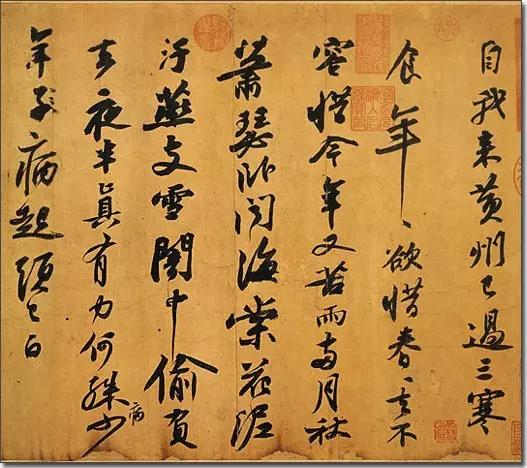 自我來黃州已過三寒
食年〻欲惜春〻去不
容惜今年又苦雨兩月秋
蕭瑟卧聞海棠花泥
汙燕支雪闇中偷負
去夜半真有力何殊少病
年子病起頭已白